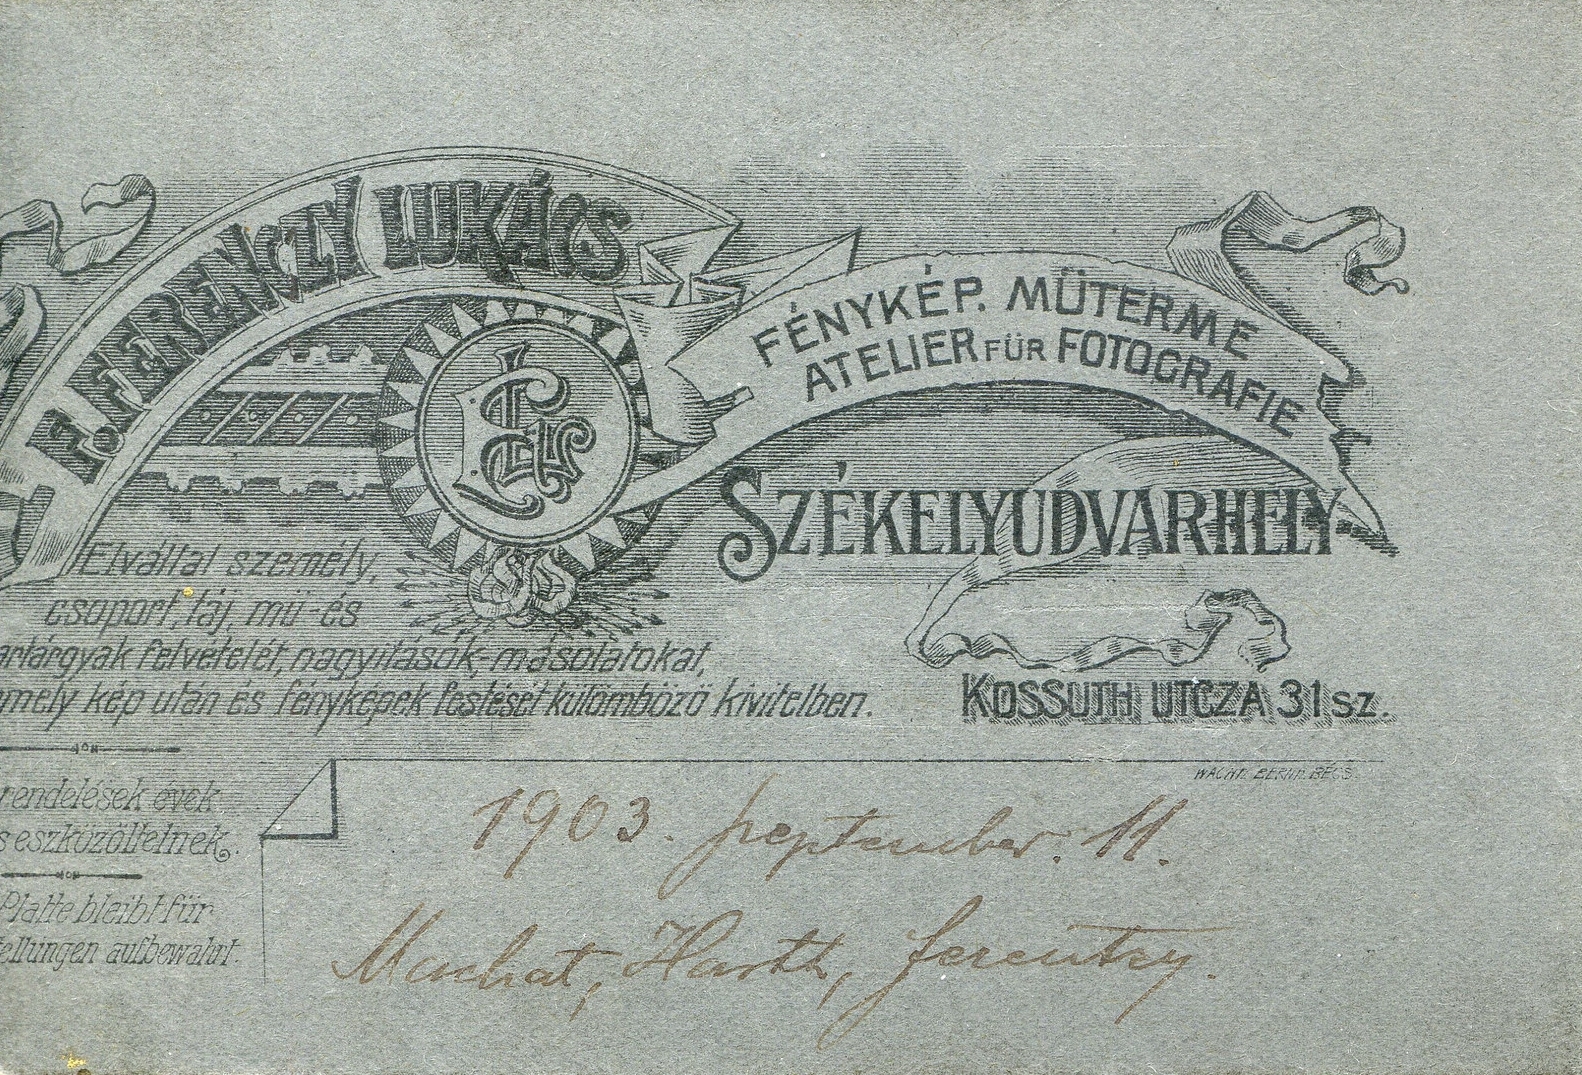 F. FERENCZY LUKÁCS
FÉNYKÉP. MŰTERME
ATELIER FÜR FOTOGRAFIE
SZÉKELYUDVARHELY
Elvállal személy,
csoport, táj, mű- és
artárgyak felvételét, nagyítások-másolatokat,
mely kép után és fényképek festését külömböző kivitelben.
KOSSUTH UTCZA 31 SZ.
rendelések évek
s eszközöltetnek.
Platte bleibt für
ellungen aufbewahrt.
BÉCS
1903. september. 11.
Machat, Harth, Ferentzy.